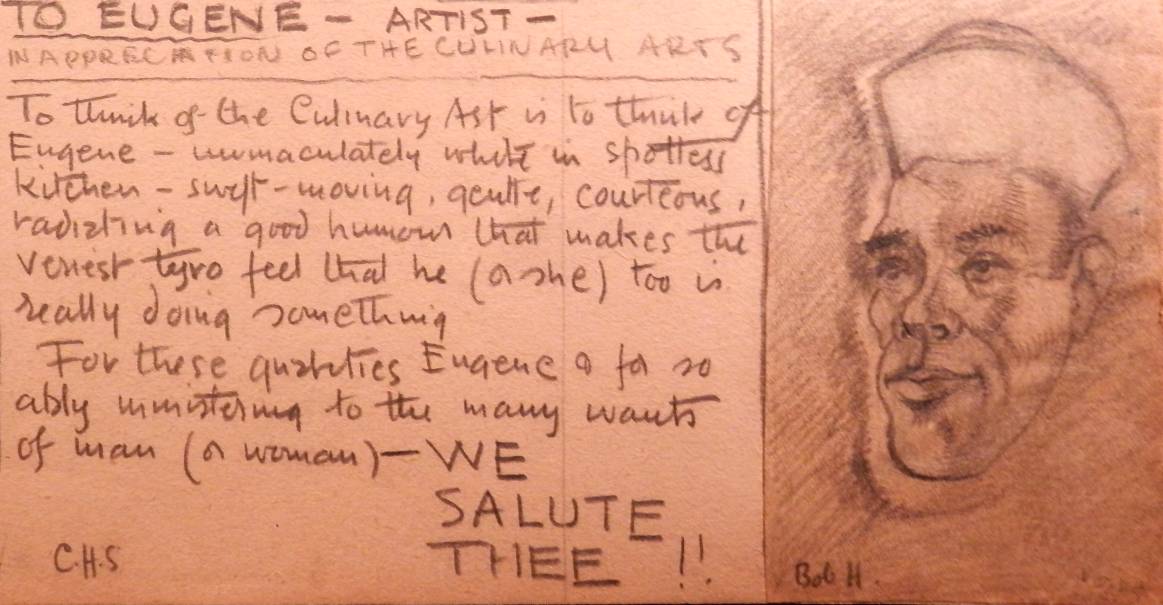 TO EUGENE - ARTIST -
IN APPRECIATION OF THE CULINARY ARTS
To think of the Culinary Art is to think of
Eugene - immaculately white in spotless
kitchen - swift-moving, gentle, courteous,
radiating a good humour that makes the
veriest tyro feel that he (or she) too is
really doing something
For these qualities Eugene & for so
ably ministering to the many wants
of man (or woman) - WE
SALUTE
THEE !!
C.H.S
Bob H.